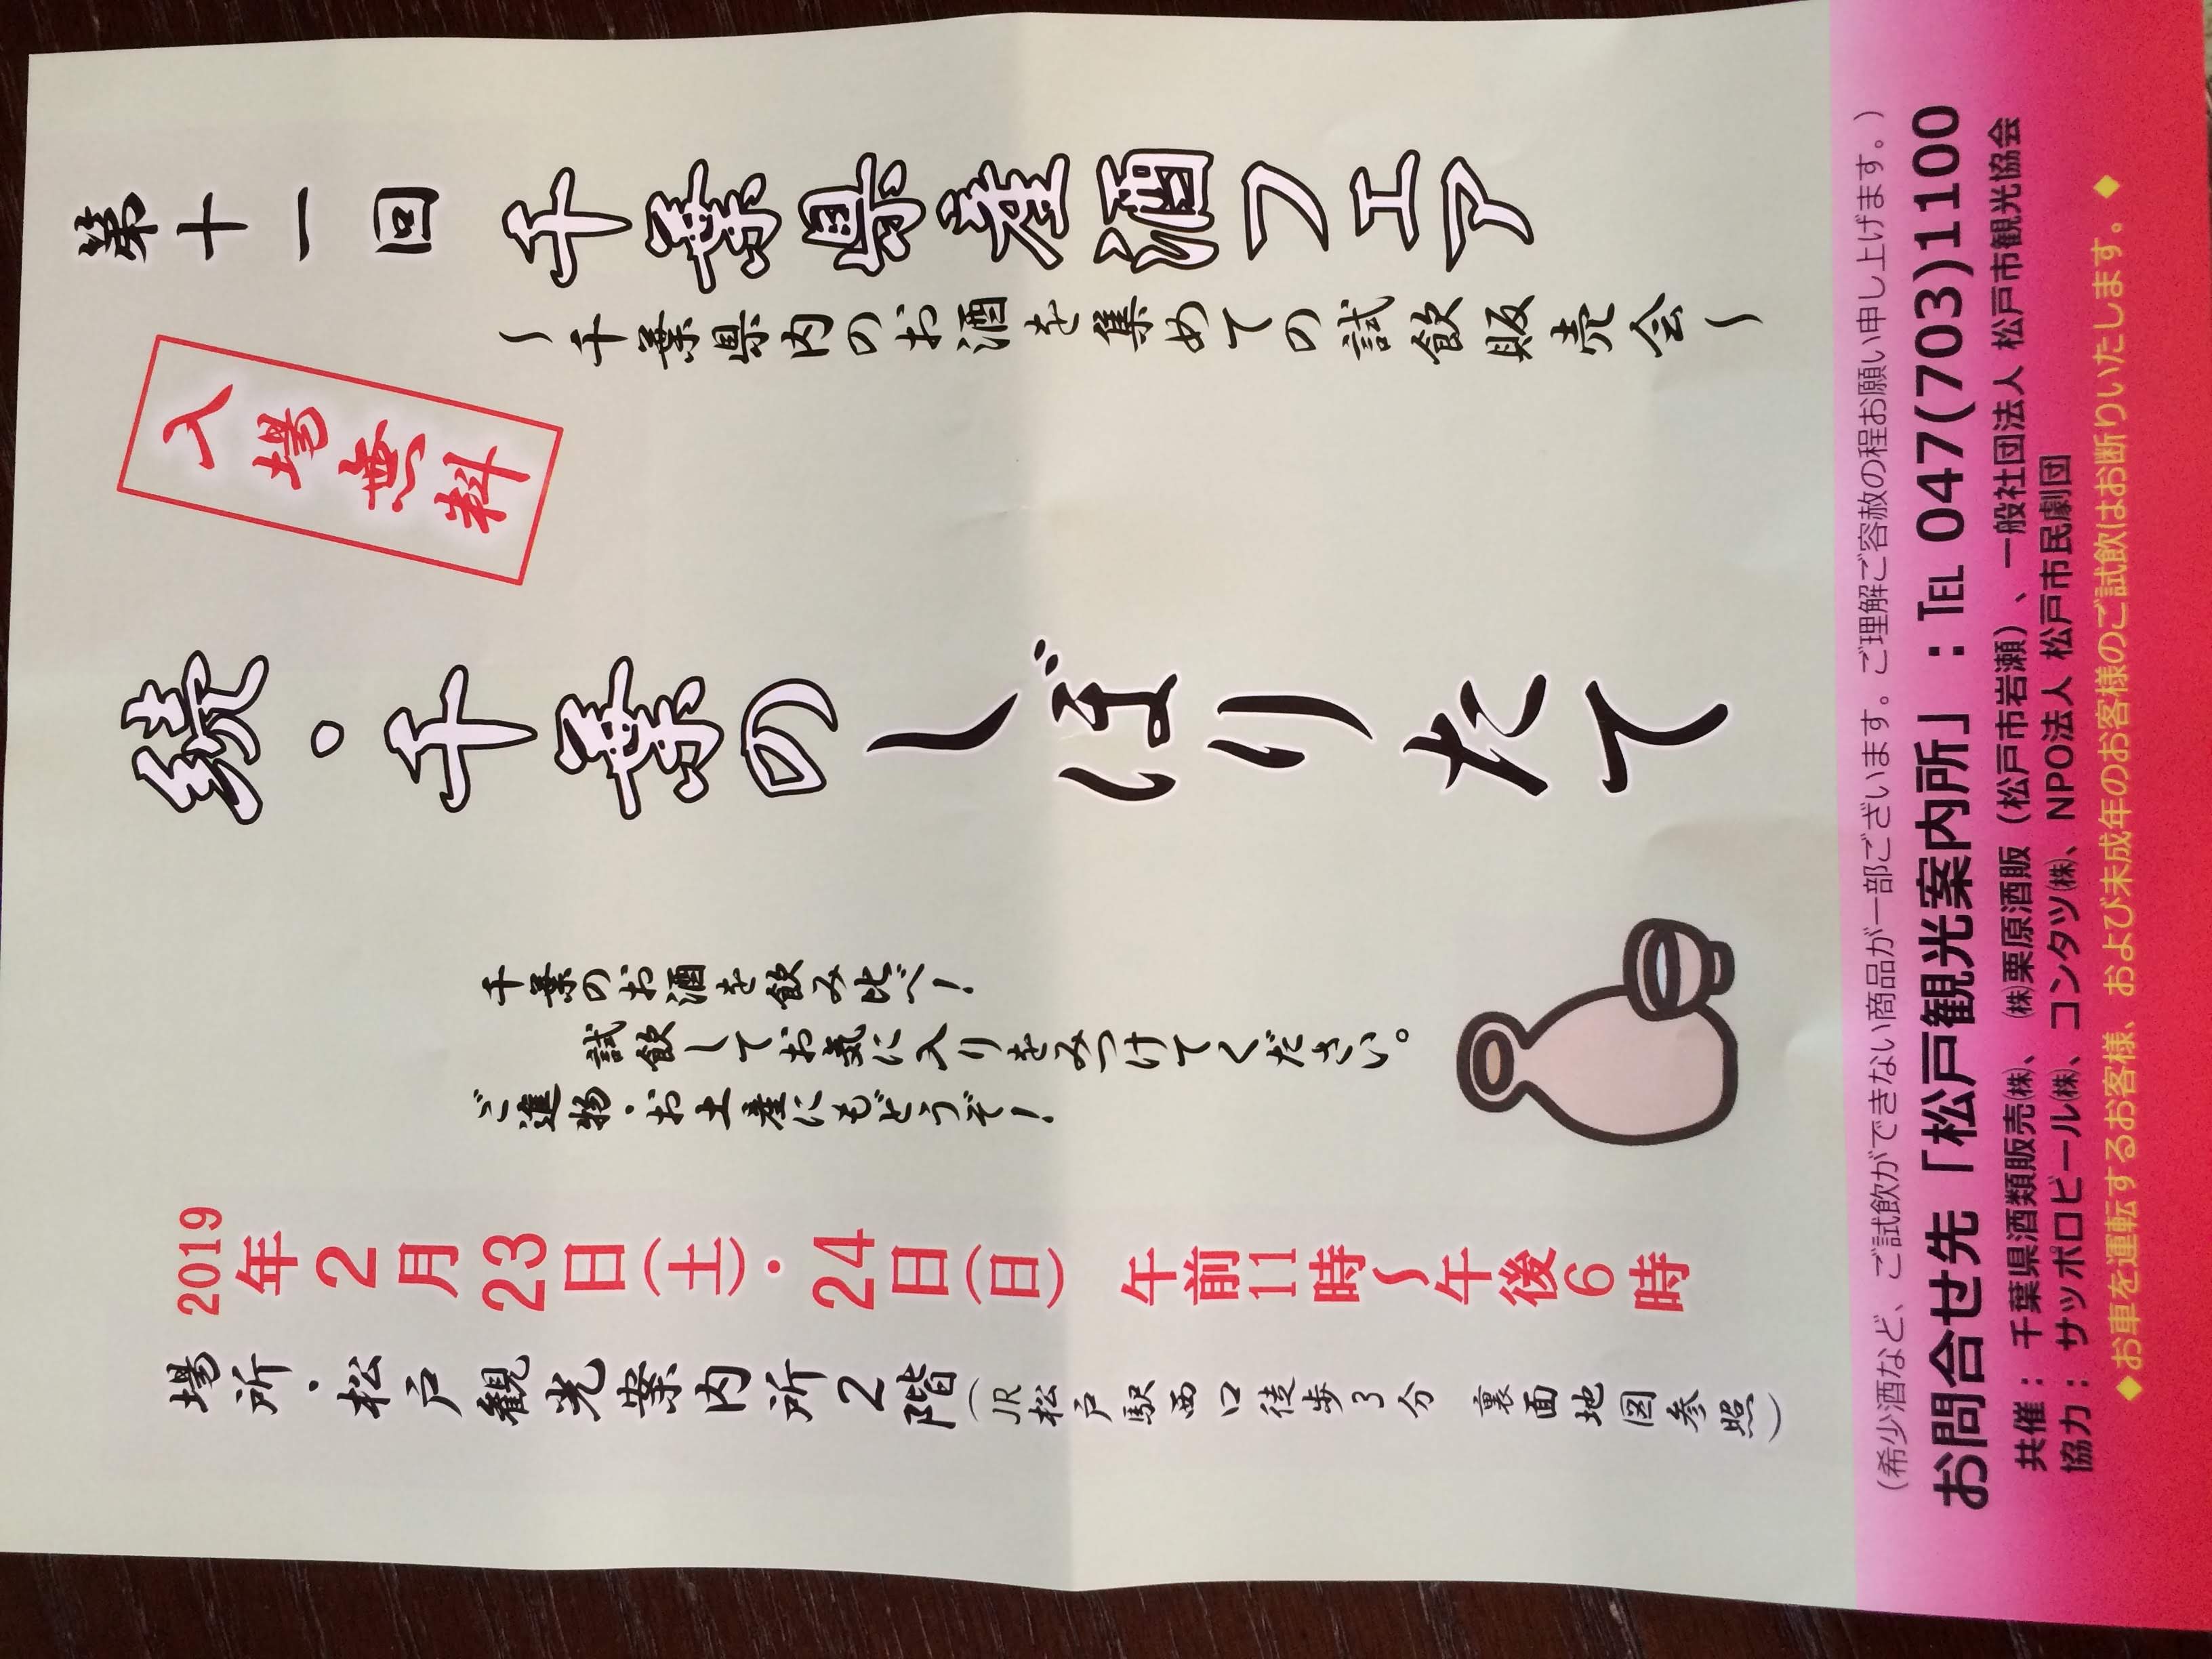 第十一回 千葉県産酒フェア
～千葉県内のお酒を集めての試飲販売会～
入場無料
続・千葉のしぼりたて
千葉のお酒を飲み比べ！
試飲してお気に入りをみつけてください。
ご進物・お土産にもどうぞ！
2019年2月23日(土)・24日(日) 午前11時～午後6時
場所・松戸観光案内所2階(JR松戸駅西口徒歩3分 裏面地図参照)
(希少酒など、ご試飲ができない商品が一部ございます。ご理解ご容赦の程お願い申し上げます。)
お問合せ先「松戸観光案内所」：TEL 047(703)1100
共催：千葉県酒類販売㈱、㈱栗原酒販（松戸市岩瀬）、一般社団法人 松戸市観光協会
協力：サッポロビール㈱、コンタツ㈱、NPO法人 松戸市民劇団
◆お車を運転するお客様、および未成年のお客様のご試飲はお断りいたします。◆